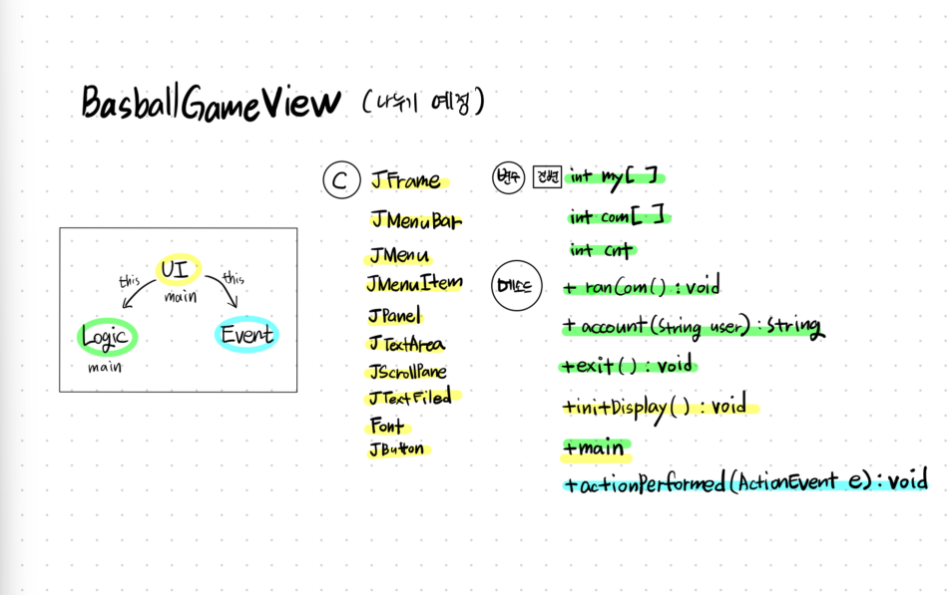 BasballGameView (나누기 예정)
this UI this
main
Logic Event
main
C JFrame
JMenuBar
JMenu
JMenuItem
JPanel
JTextArea
JScrollPane
JTextFiled
Font
JButton
변수 전변 int my[ ]
int com[ ]
int cnt
메소드 + ranCom() : void
+ account(String user) : String
+exit() : void
+initDisplay() : void
+main
+actionPerformed(ActionEvent e) : void